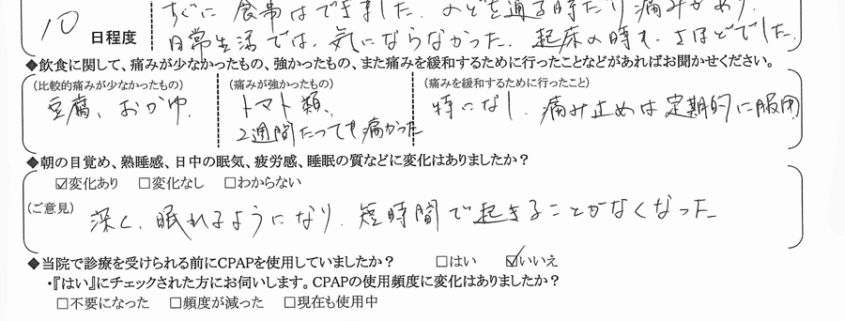 すぐに食事はできました。のどを通る時だけ痛みがあり、
10 日程度 日常生活では、気にならなかった。起床の時も、さほどでした。
◆飲食に関して、痛みが少なかったもの、強かったもの、また痛みを緩和するために行ったことなどがあればお聞かせください。
(比較的痛みが少なかったもの) (痛みが強かったもの) (痛みを緩和するために行ったこと)
豆腐、おかゆ、 トマト類、 特になし、痛み止めは定期的に服用
2週間たっても痛かった
◆朝の目覚め、熟睡感、日中の眠気、疲労感、睡眠の質などに変化はありましたか?
☑変化あり □変化なし □わからない
(ご意見) 深く、眠れるようになり、短時間で起きることがなくなった
◆当院で診療を受けられる前にCPAPを使用していましたか? □はい ☑いいえ
・『はい』にチェックされた方にお伺いします。CPAPの使用頻度に変化はありましたか?
□不要になった □頻度が減った □現在も使用中